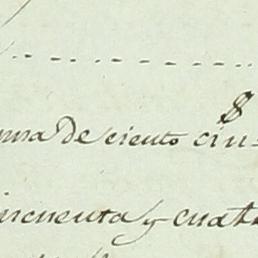 $
uma de ciento cin-
incuenta y cuat